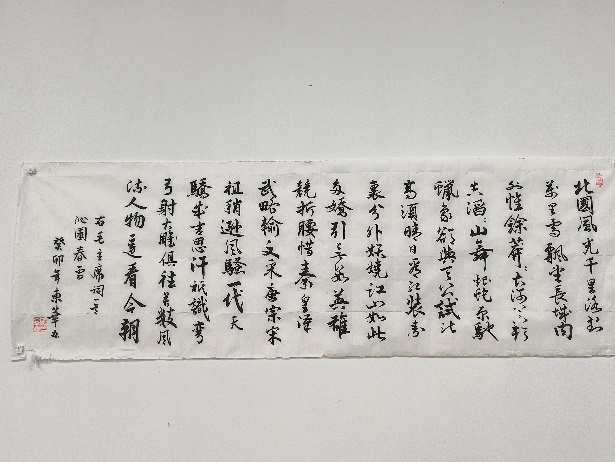 北國風光千里冰封
萬里雪飄望長城內
外惟餘莽莽大河上下頓
失滔滔山舞銀蛇原馳
蠟象欲與天公試比
高須晴日看紅裝素
裹分外妖嬈江山如此
多嬌引無數英雄
競折腰惜秦皇漢
武略輸文采唐宗宋
祖稍遜風騷一代天
驕成吉思汗祇識彎
弓射大雕俱往矣數風
流人物還看今朝
右毛主席詞一首
沁園春雪
癸卯年東華書